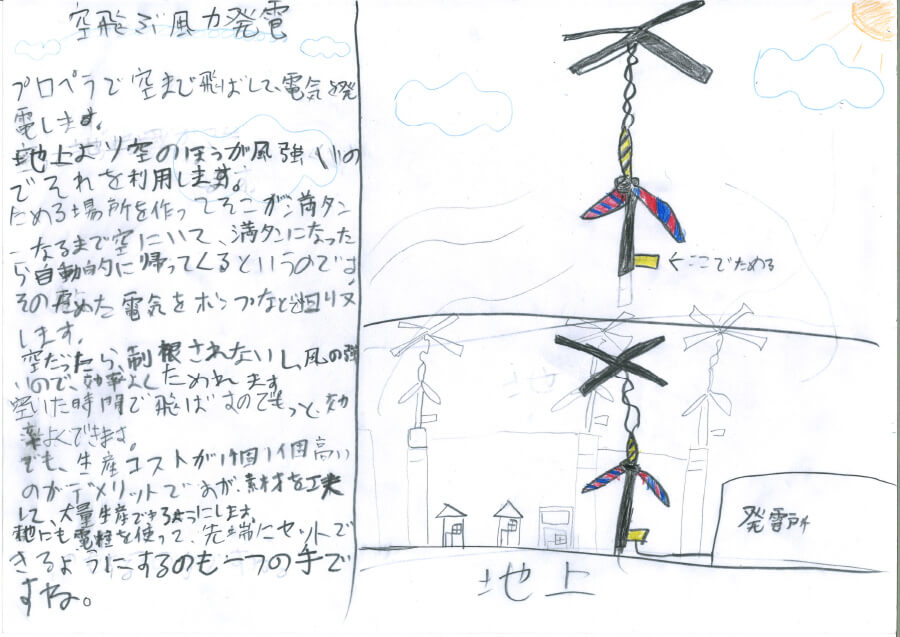 空飛ぶ風力発電
プロペラで空まで飛ばして、電気を発
電します。
地上より空のほうが風強いの
でそれを利用します。
ためる場所を作ってそこが満タン
になるまで空にいて、満タンになった
ら自動的に帰ってくるというのでは、
その貯めた電気をポンプなど
します。
空だったら、制根されないし風の強
いので、効率よくためれます
空いた時間で飛ばすのでもっと、効
率よくできます。
でも、生産コストが1個1個高い
のがデメリットですが、素材を工夫
して、大量生産できるようにします。
他にも電柱を使って、先端にセットで
きるようにするのも一つの手で
すね。
←ここでためる
発電所
地上